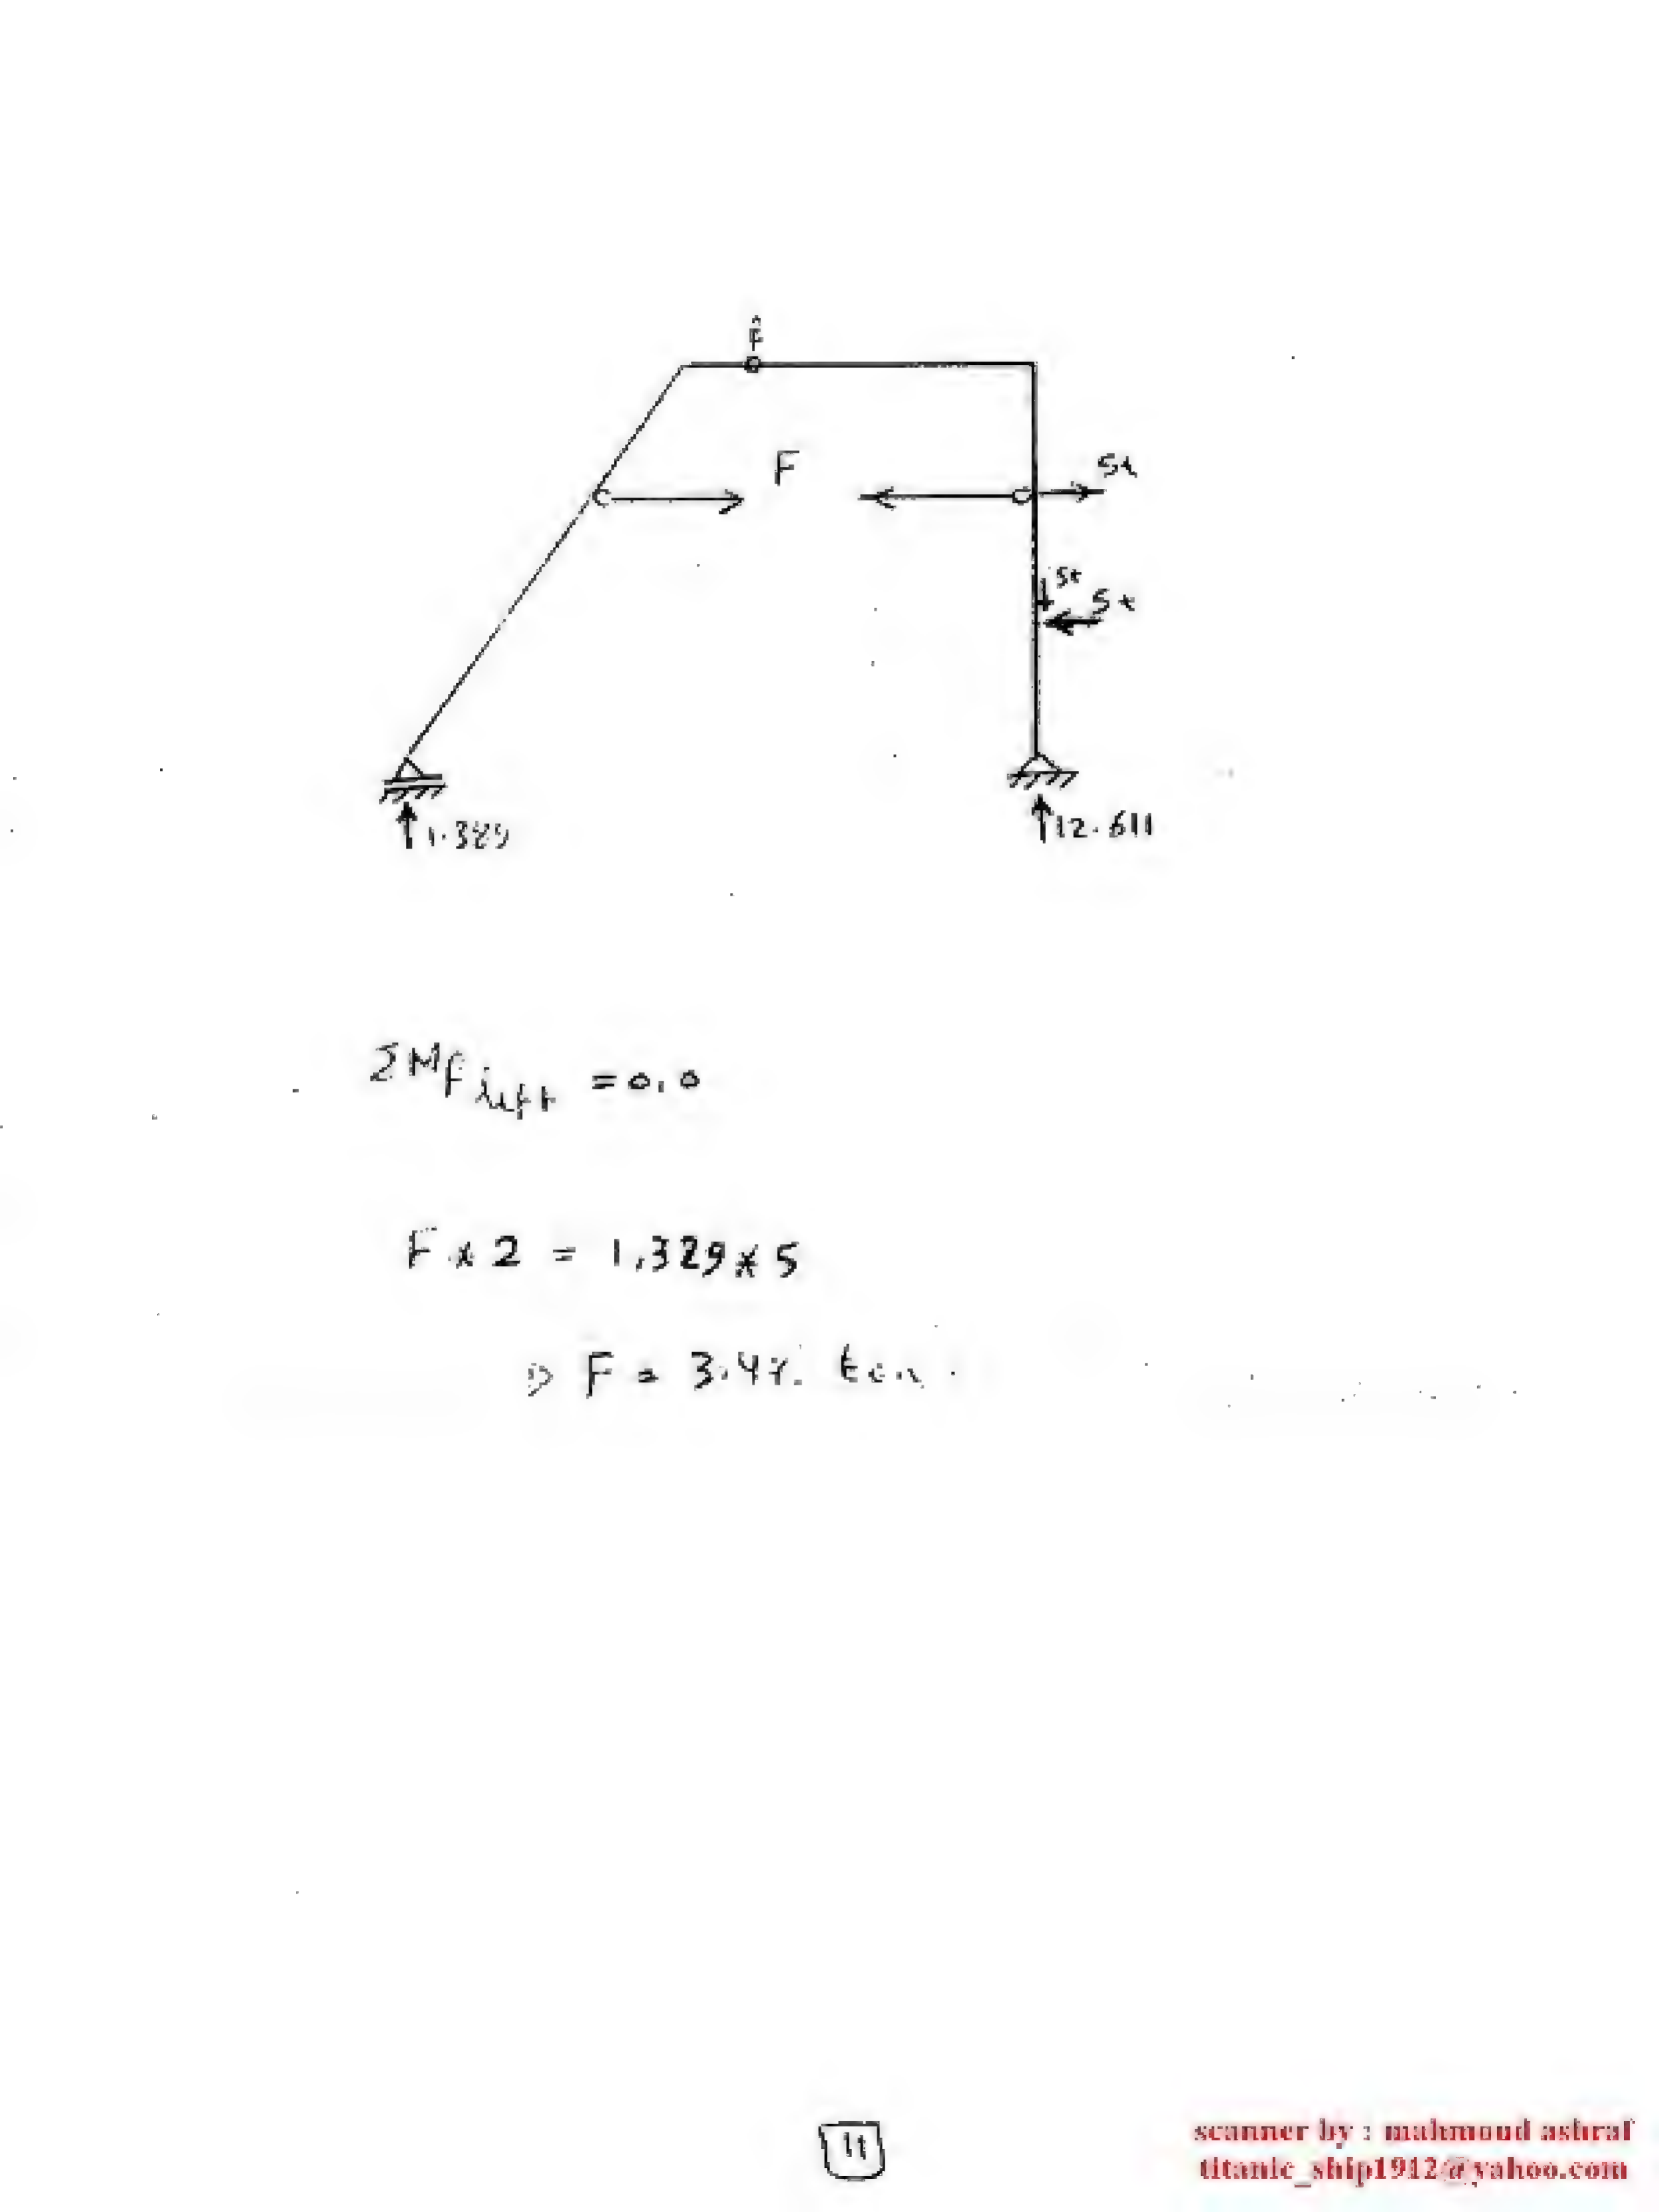 F
F
5t
5t
5t
1.389
12.611
ΣMf left = 0.0
F * 2 = 1.389 * 5
⇒ F = 3.47 ton.
11
scanner by : mahmoud ashraf
titanic_ship1912@yahoo.com